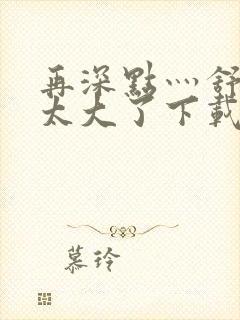 再深點灬舒
太大了下載
慕玲